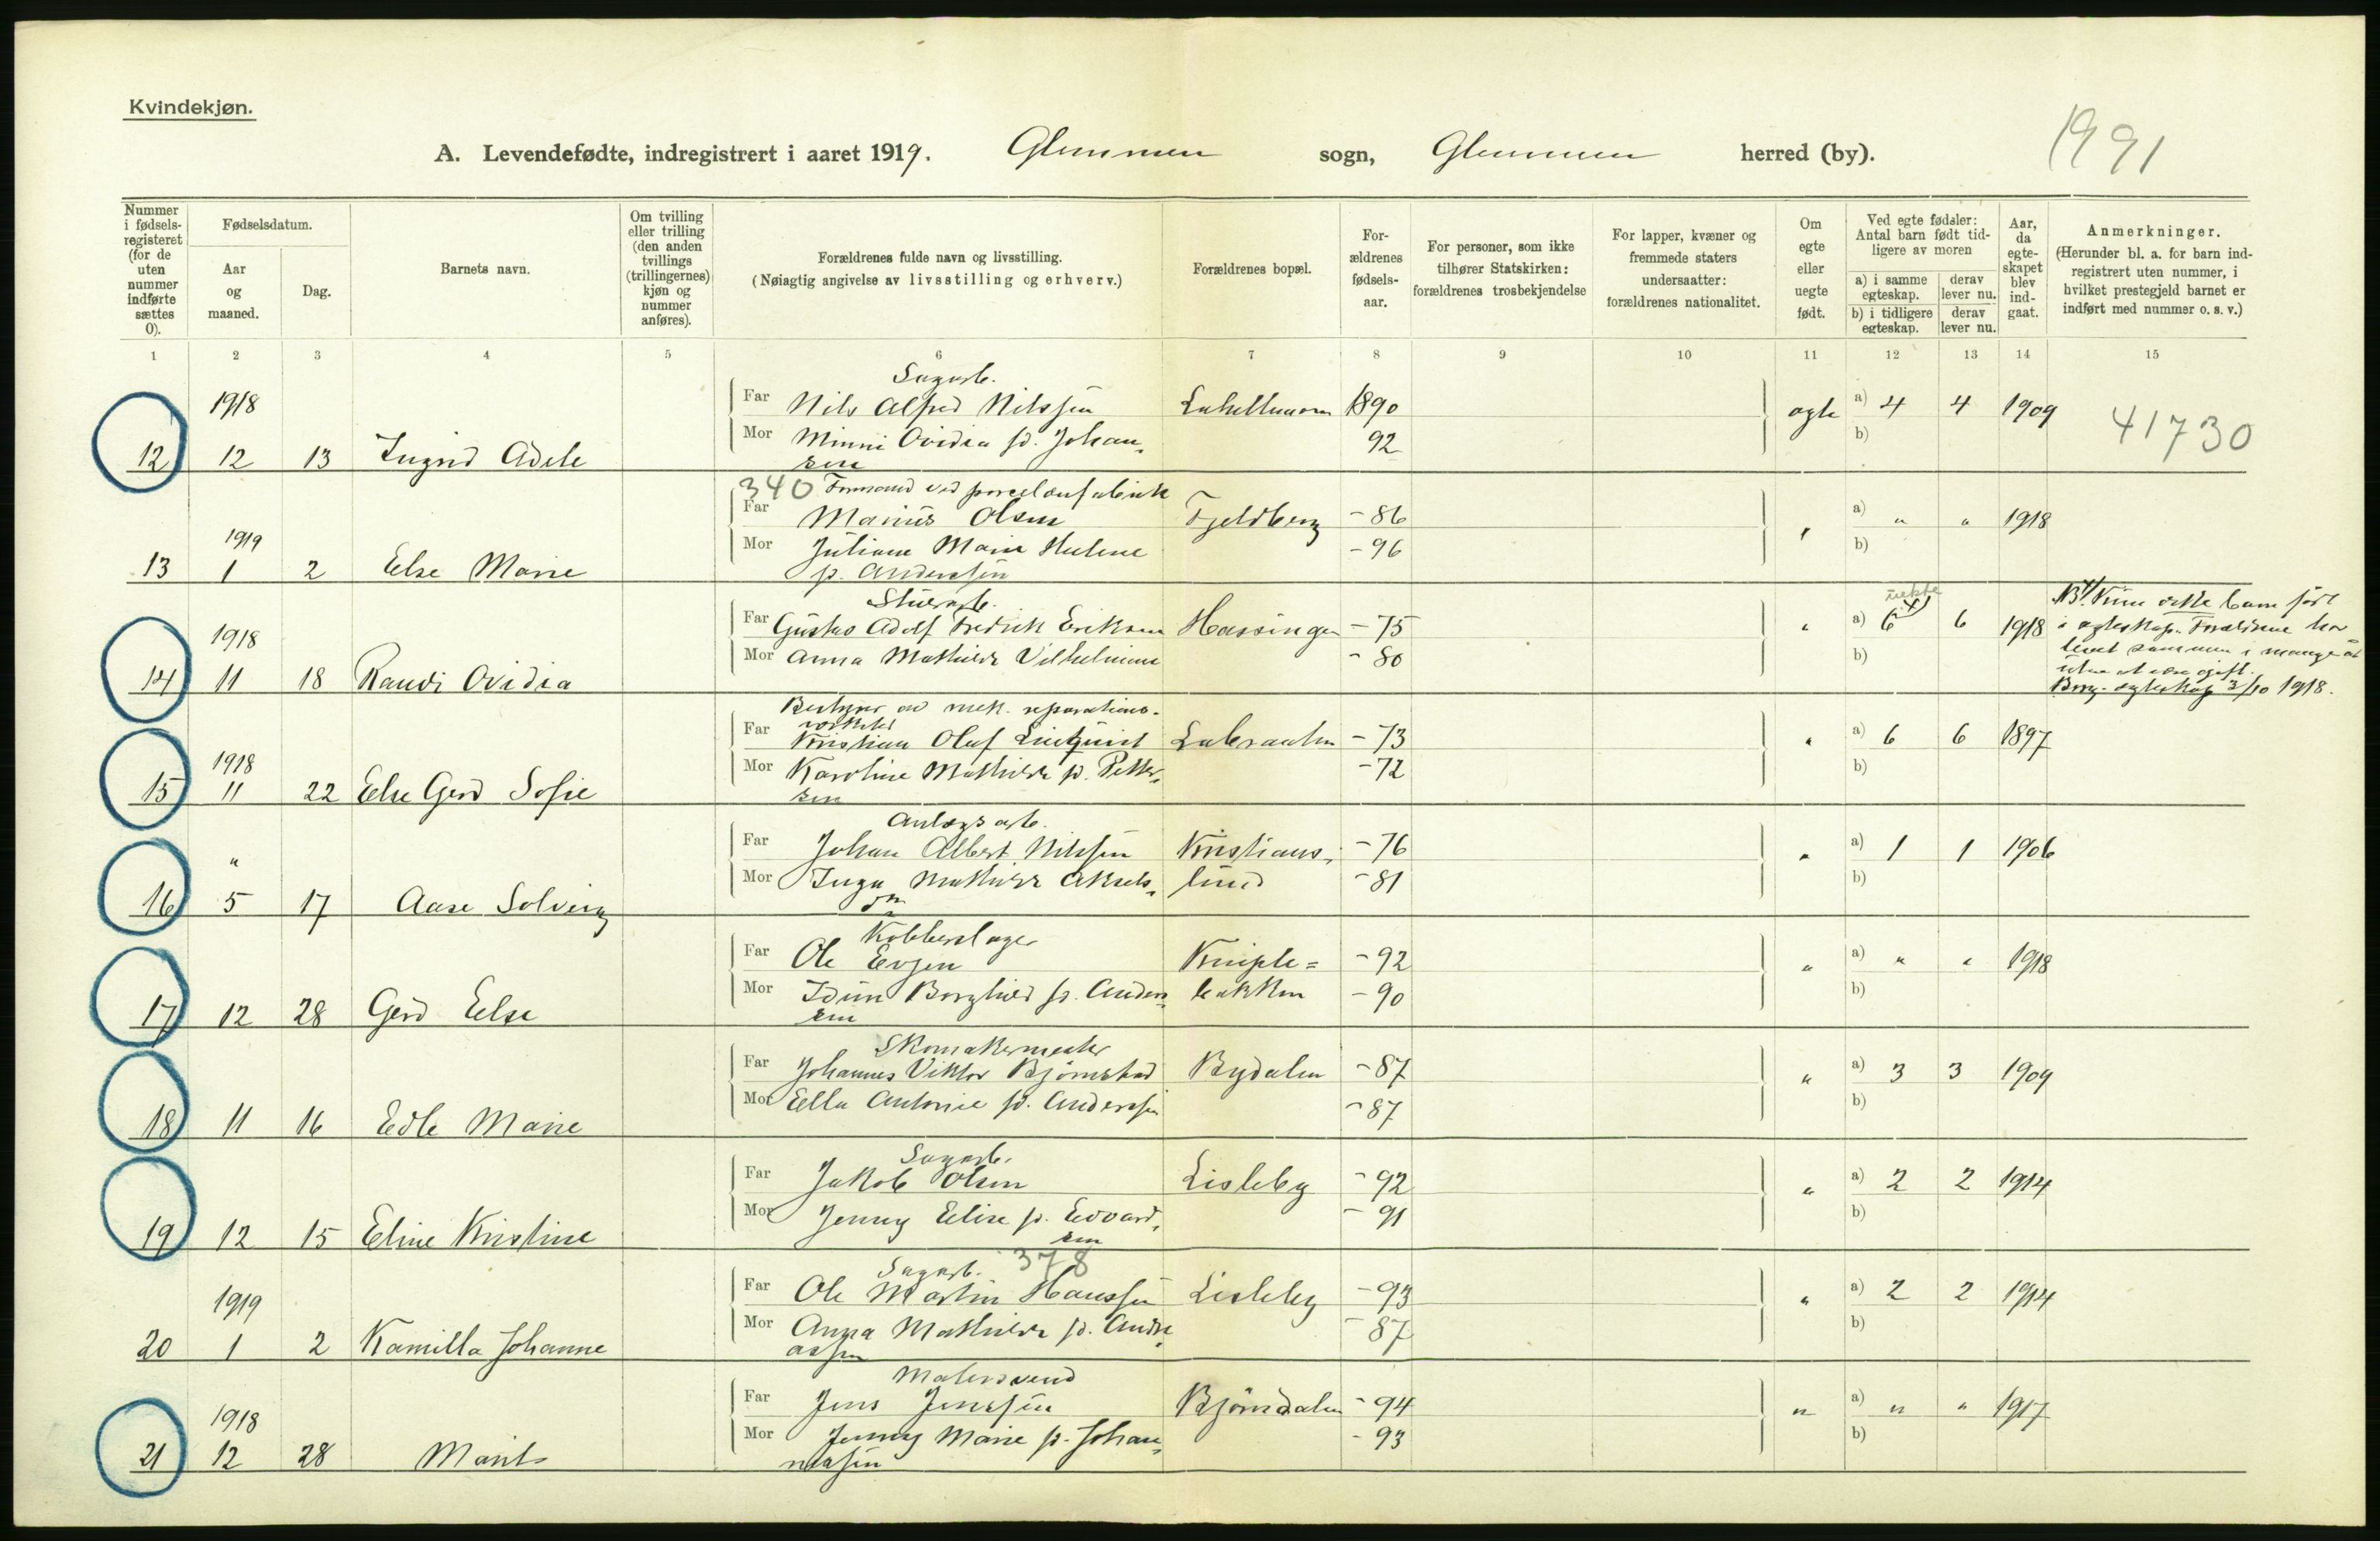 Kvindekjøn.
A. Levendefødte, indregistrert i aaret 1919. Glemmen sogn, Glemmen herred (by). 1991
Nummer i fødselsregisteret (for de uten nummer indførte sættes 0).
Fødselsdatum.
Aar og maaned.
Dag.
Barnets navn.
Om tvilling eller trilling (den anden tvillings (trillingernes) kjøn og nummer anføres).
Forældrenes fulde navn og livsstilling.
(Nøiagtig angivelse av livsstilling og erhverv.)
Forældrenes bopæl.
Forældrenes fødselsaar.
For personer, som ikke tilhører Statskirken: forældrenes trosbekjendelse
For lapper, kvæner og fremmede staters undersaatter: forældrenes nationalitet.
Om egte eller uegte født.
Ved egte fødsler: Antal barn født tidligere av moren
a) i samme egteskap.
derav lever nu.
b) i tidligere egteskap.
derav lever nu.
Aar, da egteskapet blev indgaat.
Anmerkninger.
(Herunder bl. a. for barn indregistrert uten nummer, i hvilket prestegjeld barnet er indført med nummer o. s. v.)
1 2 3 4 5 6 7 8 9 10 11 12 13 14 15
Sagarb.
1918 Far Nils Alfred Nilssen 1890 ægte a) 4 4 1909 41730
Mor Minni Ovidia fd. Johan- 92 b)
12 12 13 Ingrid Adele
sen
340 Formand ved porcelænsfabrik
Far Marius Olsen Fjeldberg -86 " a) " " 1918
1919 Mor Juliane Marie Helene -96 b)
13 1 2 Else Marie fd. Anderssen
Stuerarb.
Far Gustav Adolf Fredrik Eriksen Hassingen -75 " a) 6 x) 6 1918
uekte
1918 Mor Anna Mathilde Vilhelmine -80 b)
14 11 18 Randi Ovidia
NB x) Kun dette barn født
i ægteskap. Forældrene har
levet sammen i mange år
uten at være gift.
Borg. ægteskap 3/10 1918.
Bestyrer av mek. reparations-
verksted
Far Kristian Oluf Lindquist Labraaten -73 " a) 6 6 1897
1918 Mor Karoline Mathilde fd. Petter- -72 b)
15 11 22 Else Gerd Sofie sen
Anlægsarb.
Far Johan Albert Nilssen Kristians- -76 " a) 1 1 1906
" Mor Inga Mathilde Aksels- lund -81 b)
16 5 17 Aase Solveig
Kobberslager
Far Ole Evjen Kniple= -92 " a) " " 1918
Mor Idun Borghild fd. Anders- bakken -90 b)
17 12 28 Gerd Else sen
Skomakermester
Far Johannes Viktor Bjørnstad Bydalen -87 " a) 3 3 1909
Mor Ella Antonie fd. Anderssen -87 b)
18 11 16 Edle Marie
Sagarb.
Far Jakob Olsen Lisleby -92 " a) 2 2 1914
Mor Jenny Elise fd. Edvard- -91 b)
19 12 15 Eline Kristine sen
Sagarb. 378
Far Ole Martin Hanssen Lisleby -93 " a) 2 2 1914
1919 Mor Anna Mathilde fd. Andre- -87 b)
20 1 2 Kamilla Johanne assen
Malersvend
Far Jens Jenssen Bjørndalen -94 " a) " " 1917
1918 Mor Jenny Marie fd. Johan- -93 b)
21 12 28 Marit nessen